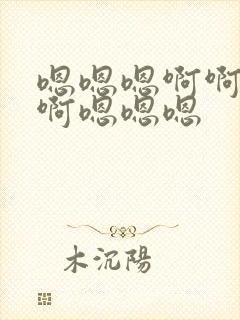 嗯嗯嗯啊啊
啊嗯嗯嗯
木沉陽